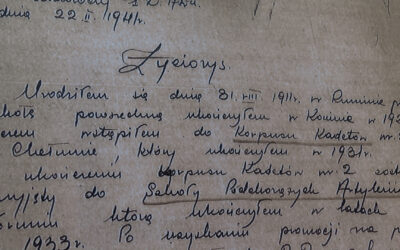 dnia 22. II. 1941r.
Życiorys.
Urodziłem się dnia 31. VIII 1911r. w Rumunii
szkołę powszechną ukończyłem w Koninie w 19
wstąpiłem do Korpusu Kadetów nr.
Chełmnie, który ukończyłem w 1931r.
ukończeniu Korpusu Kadetów nr. 2
do Szkoły Podchorążych Artylerii
którą ukończyłem w latach
1933r. Po uzyskaniu promocji na